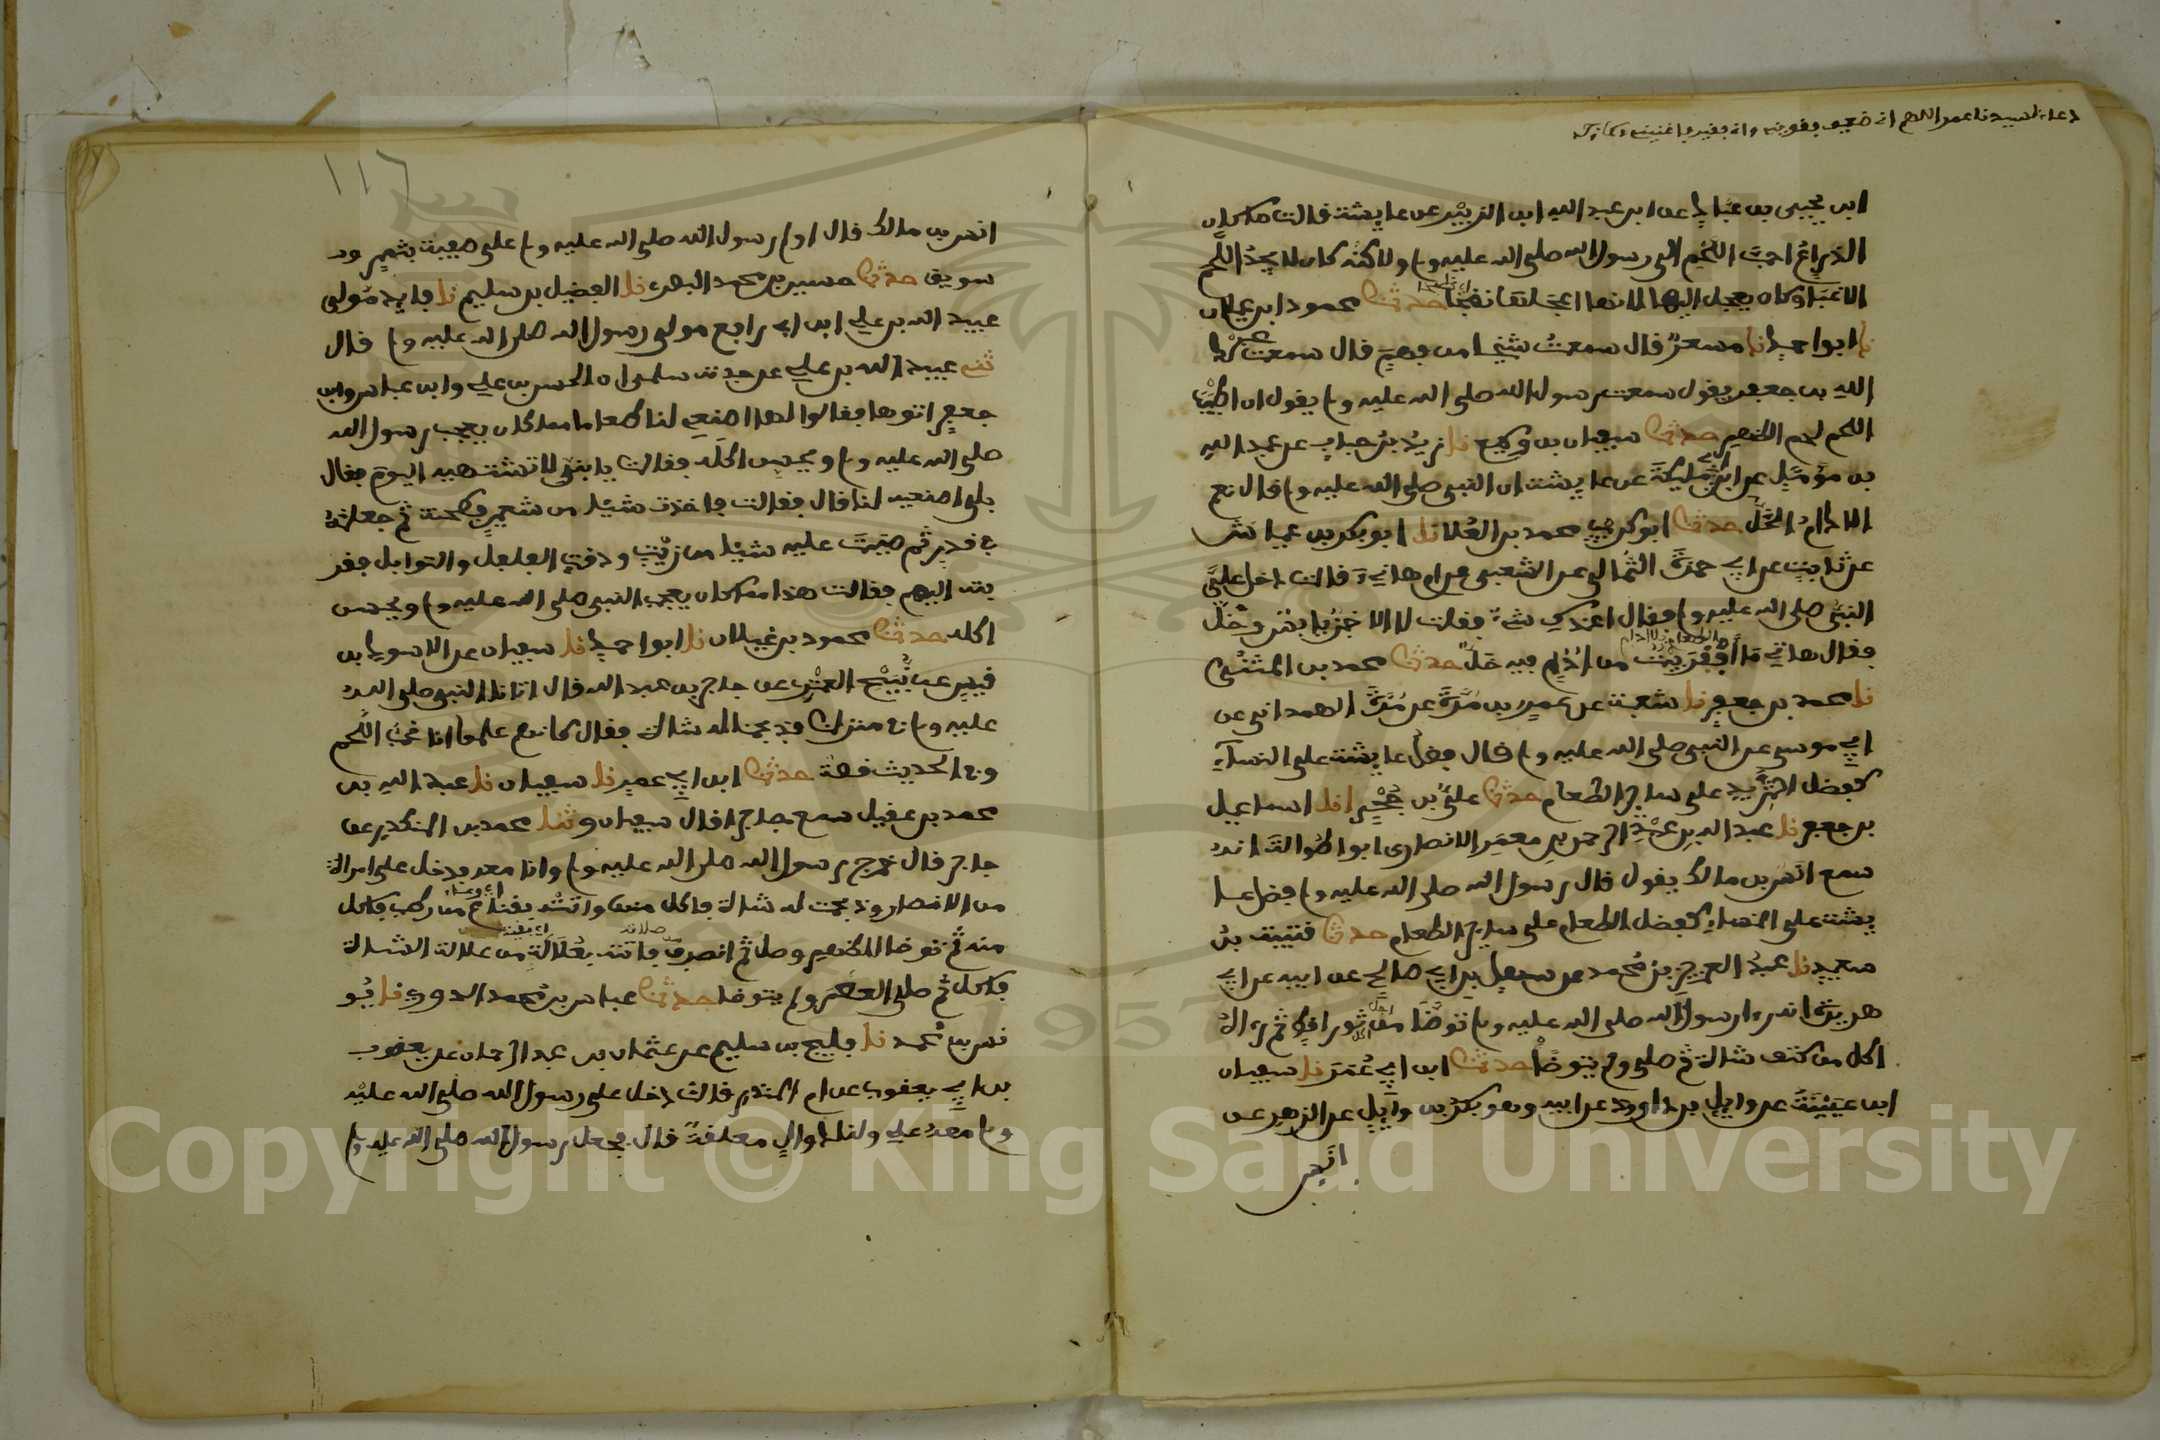 دعاء لسيدنا عمر اللهم اني ضعيف فقوني واني فقير فاغنني
ابن يحيى بن عباد عن ابن عبد الله ابن الزبير عن عايشة قالت ما كان
الذراع احب اللحم الى رسول الله صلى الله عليه وم ولاكنه كان لا يجد اللحم
الا غبا وكان يعجل اليها لانها اعجلها نضجا حدثنا محمود ابن غيلان
نا ابو احمد نا مسعر قال سمعت شيخا من فهم قال سمعت عبد
الله بن جعفر يقول سمعت رسول الله صلى الله عليه وم يقول ان اطيب
اللحم لحم الظهر حدثنا سفيان بن وكيع نا زيد بن حباب عن عبد الله
بن مؤمل عن ابن ابي مليكة عن عايشة ان النبي صلى الله عليه وم قال نعم
الادام الخل حدثنا ابو كريب محمد بن العلا نا ابو بكر بن عياش
عن ثابت عن ابي حمزة الثمالي عن الشعبي عن ام هانيء قالت دخل علي
النبي صلى الله عليه وم فقال اعندك شيء فقلت لا الا خبز يابس وخل
فقال هاتي ما اقفر بيت من ادم فيه خل حدثنا محمد بن المثنى
نا محمد بن جعفر نا شعبة عن عمرو بن مرة عن مرة الهمداني عن
ابي موسى عن النبي صلى الله عليه وم قال فضل عايشة على النساء
كفضل الثريد على ساير الطعام حدثنا علي بن حجر نا اسماعيل
بن جعفر نا عبد الله بن عبد الرحمن بن معمر الانصاري ابو طوالة انه
سمع انس بن مالك يقول قال رسول الله صلى الله عليه وم فضل عا
يشة على النساء كفضل الطعام على ساير الطعام حدثنا قتيبة بن
سعيد نا عبد العزيز بن محمد عن سهيل بن ابي صالح عن ابيه عن ابي
هريرة انه را رسول الله صلى الله عليه وم توضا من ثور اقط ثم رءاه
اكل من كتف شاة ثم صلى ولم يتوضا حدثنا ابن ابي عمر نا سفيان
ابن عيينة عن وايل بن داوود عن ابيه وهو بكر بن وايل عن الزهري عن
انس
١١٦
انس بن مالك قال اولم رسول الله صلى الله عليه وم على صفية بتمر و
سويق حدثنا حسين بن محمد البصري نا الفضيل بن سليم نا فايد مولى
عبيد الله بن علي ابن ابي رافع مولى رسول الله صلى الله عليه وم قال
ثني عبيد الله بن علي عن جدته سلمى ان الحسن بن علي وابن عباس وابن
جعفر اتوها فقالوا لها اصنعي لنا طعاما مما كان يعجب رسول الله
صلى الله عليه وم ويحسن اكله فقالت يا بني لا تشتهيه اليوم فقال
بلى اصنعيه لنا قال فقامت فاخذت شيئا من شعير فطحنته ثم جعلته
في قدر ثم صبت عليه شيئا من زيت ودقت الفلفل والتوابل فقر
بته اليهم فقالت هذا مما كان يعجب النبي صلى الله عليه وم ويحسن
اكله حدثنا محمود بن غيلان نا ابو احمد نا سفيان عن الاسود بن
قيس عن نبيح العنزي عن جابر بن عبد الله قال اتانا النبي صلى الله
عليه وم في منزلنا فذبحنا له شاة فقال كانهم علموا انا نحب اللحم
وفي الحديث قصة حدثنا ابن ابي عمر نا سفيان نا عبد الله بن
محمد بن عقيل سمع جابرا قال سفيان وثنا محمد بن المنكدر عن
جابر قال خرج رسول الله صلى الله عليه وم وانا معه فدخل على امراة
من الانصار فذبحت له شاة فاكل منها واتته بقناع من رطب فاكل
منه ثم توضا للظهر وصلى ثم انصرف فاتته بعلالة من علالة الشاة
فاكل ثم صلى العصر ولم يتوضا حدثنا عباس بن محمد الدوري نا يو
نس بن محمد نا فليح بن سليم عن عثمان بن عبد الرحمان عن يعقوب
بن ابي يعقوب عن ام المنذر قالت دخل علي رسول الله صلى الله عليه
وم معه علي ولنا دوالي معلقة قال فجعل رسول الله صلى الله عليه وم
Copyright © King Saud University
1957